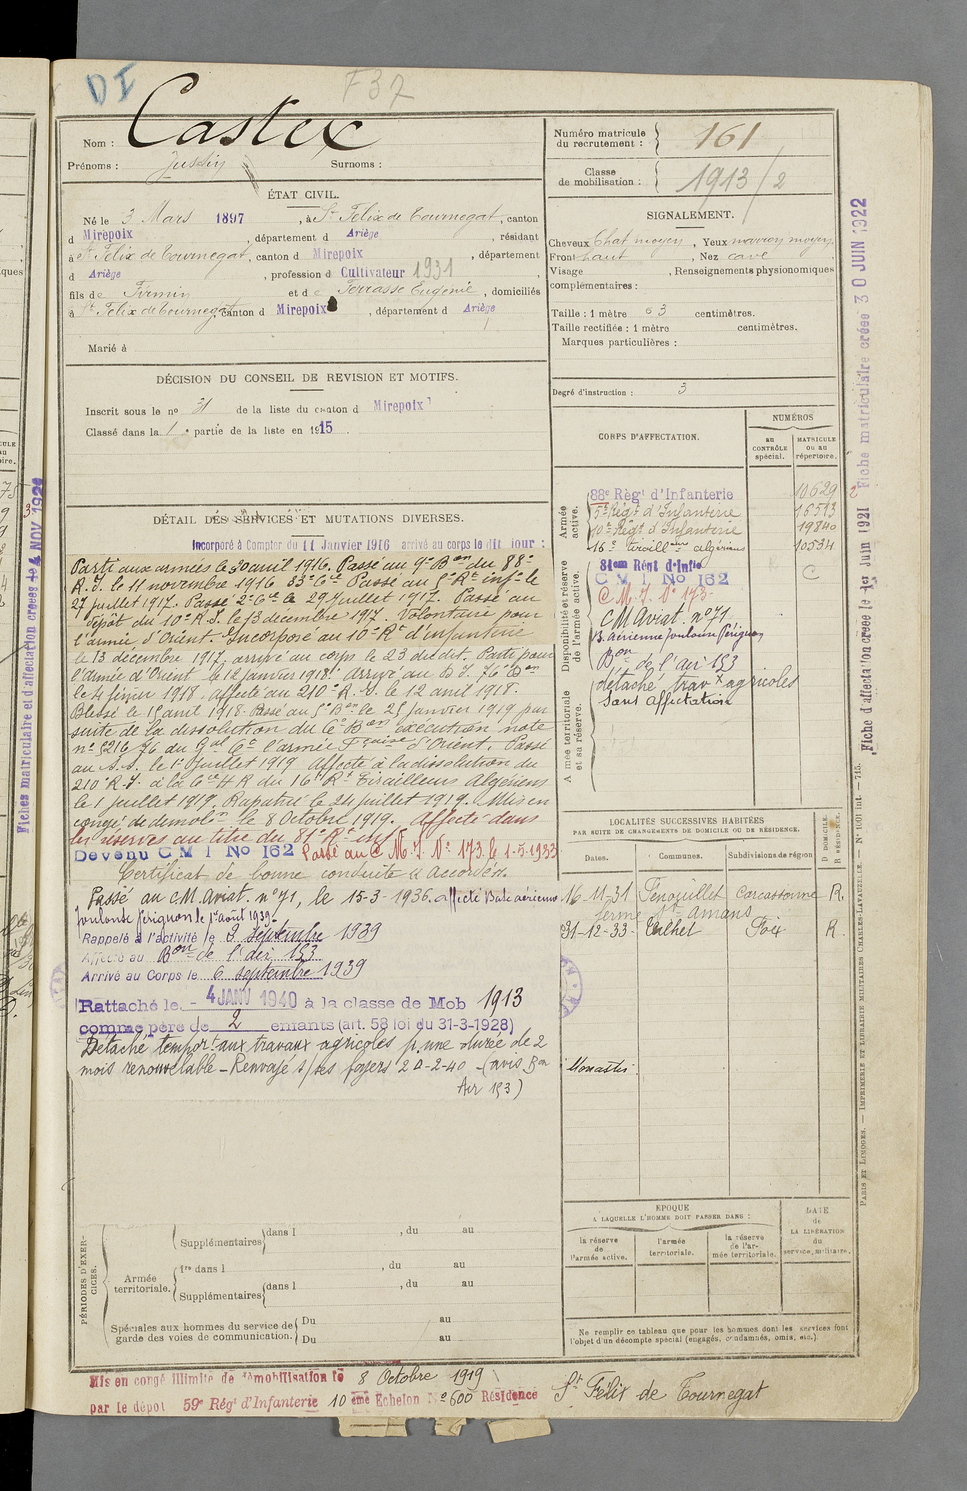 DI
F37
Nom : Castex
Prénoms : Justin Surnoms :
ÉTAT CIVIL.
Né le 3 Mars 1897, à St Felix de Tournegat, canton
d Mirepoix, département d Ariège, résidant
à St Felix de Tournegat, canton d Mirepoix, département
d Ariège, profession d Cultivateur 1931
fils de Firmin et de Terrasse Eugénie, domiciliés
à St Felix de Tournegat canton d Mirepoix, département d Ariège
Marié à
DÉCISION DU CONSEIL DE REVISION ET MOTIFS.
Inscrit sous le no 31 de la liste du canton d Mirepoix
Classé dans la 1e partie de la liste en 1915.
DÉTAIL DES SERVICES ET MUTATIONS DIVERSES.
Incorporé à Compter du 11 Janvier 1916 arrivé au corps le dit jour :
Parti aux armées le 30 avril 1916. Passé au 9e Bon du 88e
R.I. le 11 novembre 1916 33e Cie Passé au 5e Rt infie le
27 juillet 1917. Passé 2e Cie le 29 juillet 1917. Passé au
dépôt du 10e R.I. le 13 décembre 1917. Volontaire pour
l'armée d'Orient. Incorporé au 10e Rt d'infanterie
le 13 décembre 1917, arrivé au corps le 23 dudit. Parti pour
l'armée d'Orient le 12 janvier 1918. Arrivé au D.I. 76e Bon
le 4 février 1918. Affecté au 210e R.I. le 12 avril 1918.
Blessé le 15 avril 1918. Passé au 5e Bon le 25 janvier 1919 par
suite de la dissolution du 6e Bon exécution note
no 6216/76 du Gal Ct l'armée Fçaise d'Orient. Passé
au le 1er juillet 1919 Affecté à la dissolution du
210e R.I. à la Cie H R du 16e Rt Tirailleurs Algériens
le 1 juillet 1919. Rapatrié le 24 juillet 1919. Mis en
congé de démobon le 8 Octobre 1919. Affecté dans
les réserves au titre du 81e Rt inf
Devenu C M I No 162 Passé au C M. I. No 173. le 1-5-1933
Certificat de bonne conduite "accordé".
Passé au CM. Aviat. no 71, le 15-3-1936. affecté Base aérienne
Toulouse Pérignon le 1er août 1939.
Rappelé à l'activité le 3 septembre 1939
Affecté au Bon de l'air 153
Arrivé au Corps le 6 septembre 1939
Rattaché le - 4 JANV 1940 à la classe de Mob 1913
comme père de 2 enfants (art. 58 loi du 31-3-1928)
Détaché tempor.t aux travaux agricoles p. une durée de 2
mois renouvelable - Renvoyé s/ ses foyers 20-2-40 - (avis Bon
Air 153)
PÉRIODES D'EXERCICES.
Supplémentaires dans l , du au
Armée territoriale. 1re dans l , du au
Supplémentaires dans l , du au
Spéciales aux hommes du service de garde des voies de communication. Du au
Du au
Mis en congé illimité de démobilisation le 8 Octobre 1919
par le dépôt 59e Régt d'Infanterie 10 ème Echelon No 600 Résidence St Félix de Tournegat
Numéro matricule du recrutement : 161
Classe de mobilisation : 1913/2
SIGNALEMENT.
Cheveux Chat moyen, Yeux marron moyen
Front haut, Nez cave
Visage , Renseignements physionomiques
complémentaires :
Taille : 1 mètre 63 centimètres.
Taille rectifiée : 1 mètre centimètres.
Marques particulières :
Degré d'instruction : 3
CORPS D'AFFECTATION.
NUMÉROS
AU CONTRÔLE spécial.
MATRICULE OU AU répertoire.
Armée active.
88e Régt d'Infanterie 10629
5e Régt d'Infanterie 16513
10e Régt d'Infanterie 19840
16e Tiraill eurs algériens 10534
Disponibilité et réserve de l'armée active.
81em Rent d'Infie
C M I No 162 C
C M. I. No 173-
CM Aviat. no 71
B. aérienne Toulouse Pérignon
Bon de l'air 153
détaché travx agricoles
Sans affectation
Armée territoriale et sa réserve.
LOCALITÉS SUCCESSIVES HABITÉES
PAR SUITE DE CHANGEMENTS DE DOMICILE OU DE RÉSIDENCE.
D DOMICILE. R RÉSIDENCE.
Dates. Communes. Subdivisions de région
16-11-31 Fenouillet Carcassonne R.
ferme St amans
31-12-33- Teilhet Foix R.
Monastir.
EPOQUE
A LAQUELLE L'HOMME DOIT PASSER DANS :
la réserve de l'armée active.
l'armée territoriale.
la réserve de l'armée territoriale.
DATE de LA LIBÉRATION du service militaire.
Ne remplir ce tableau que pour les hommes dont les services font
l'objet d'un décompte spécial (engagés, condamnés, omis, etc.)
Fiche d'affectation créée le 1er Juin 1921 Fiche matriculaire créée 30 JUIN 1922
PARIS ET LIMOGES. — IMPRIMERIE ET LIBRAIRIE MILITAIRES CHARLES-LAVAUZELLE. — No 1001 int. — 715.
Fiches matriculaire et d'affectation créées le 4 NOV 1920